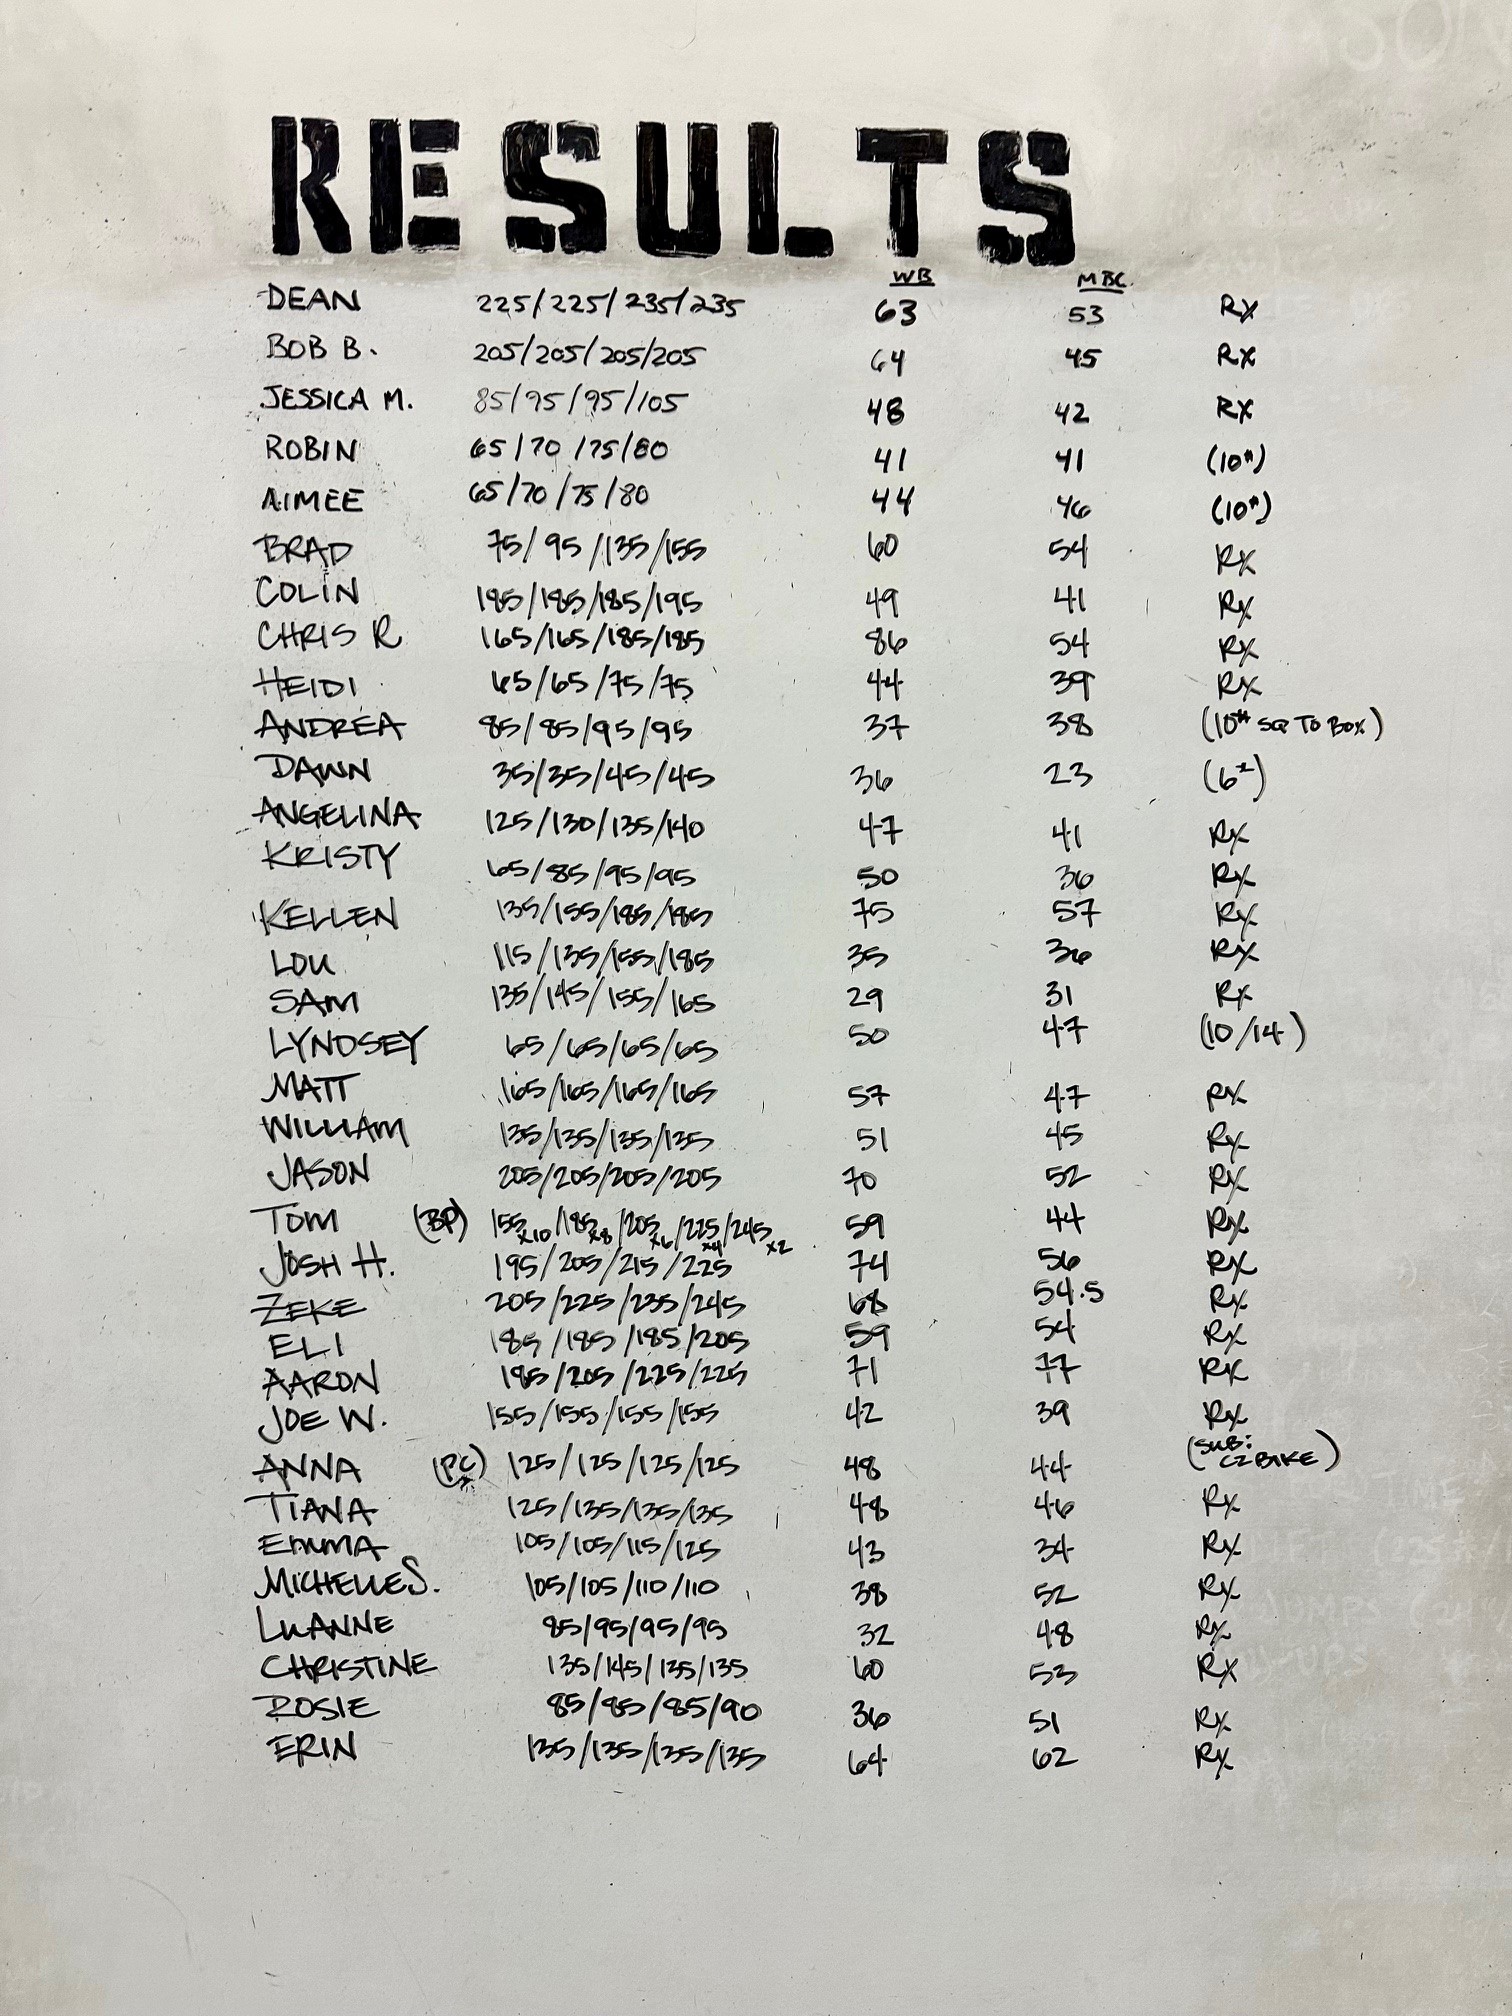 RESULTS
WB MBC
DEAN 225/225/235/235 63 53 Rx
BOB B. 205/205/205/205 64 45 Rx
JESSICA M. 85/95/95/105 48 42 Rx
ROBIN 65/70/75/80 41 41 (10#)
AIMEE 65/70/75/80 44 46 (10#)
BRAD 75/95/135/155 60 54 Rx
COLIN 185/185/185/195 49 41 Rx
CHRIS R 165/165/185/185 86 54 Rx
HEIDI 65/65/75/75 44 39 Rx
ANDREA 85/85/95/95 37 38 (10# SQ TO BOX)
DAWN 35/35/45/45 36 23 (6#)
ANGELINA 125/130/135/140 47 41 Rx
KRISTY 65/85/95/95 50 36 Rx
KELLEN 135/155/185/185 75 57 Rx
LOU 115/135/155/185 35 36 Rx
SAM 135/145/155/165 29 31 Rx
LYNDSEY 65/65/65/65 50 47 (10/14)
MATT 165/165/165/165 57 47 Rx
WILLIAM 135/135/135/135 51 45 Rx
JASON 205/205/205/205 70 52 Rx
TOM (BP) 155x10/185x8/205x6/225x4/245x2 59 44 Rx
JOSH H. 195/205/215/225 74 56 Rx
ZEKE 205/225/235/245 68 54.5 Rx
ELI 185/185/185/205 59 54 Rx
AARON 185/205/225/225 71 77 Rx
JOE W. 155/155/155/155 42 39 Rx
ANNA (PC) 125/125/125/125 48 44 (SUB: C2 BIKE)
TIANA 125/135/135/135 48 46 Rx
EMMA 105/105/115/125 43 34 Rx
MICHELLE S. 105/105/110/110 38 52 Rx
LUANNE 85/95/95/95 32 48 Rx
CHRISTINE 135/145/135/135 60 53 Rx
ROSIE 85/85/85/90 36 51 Rx
ERIN 135/135/135/135 64 62 Rx